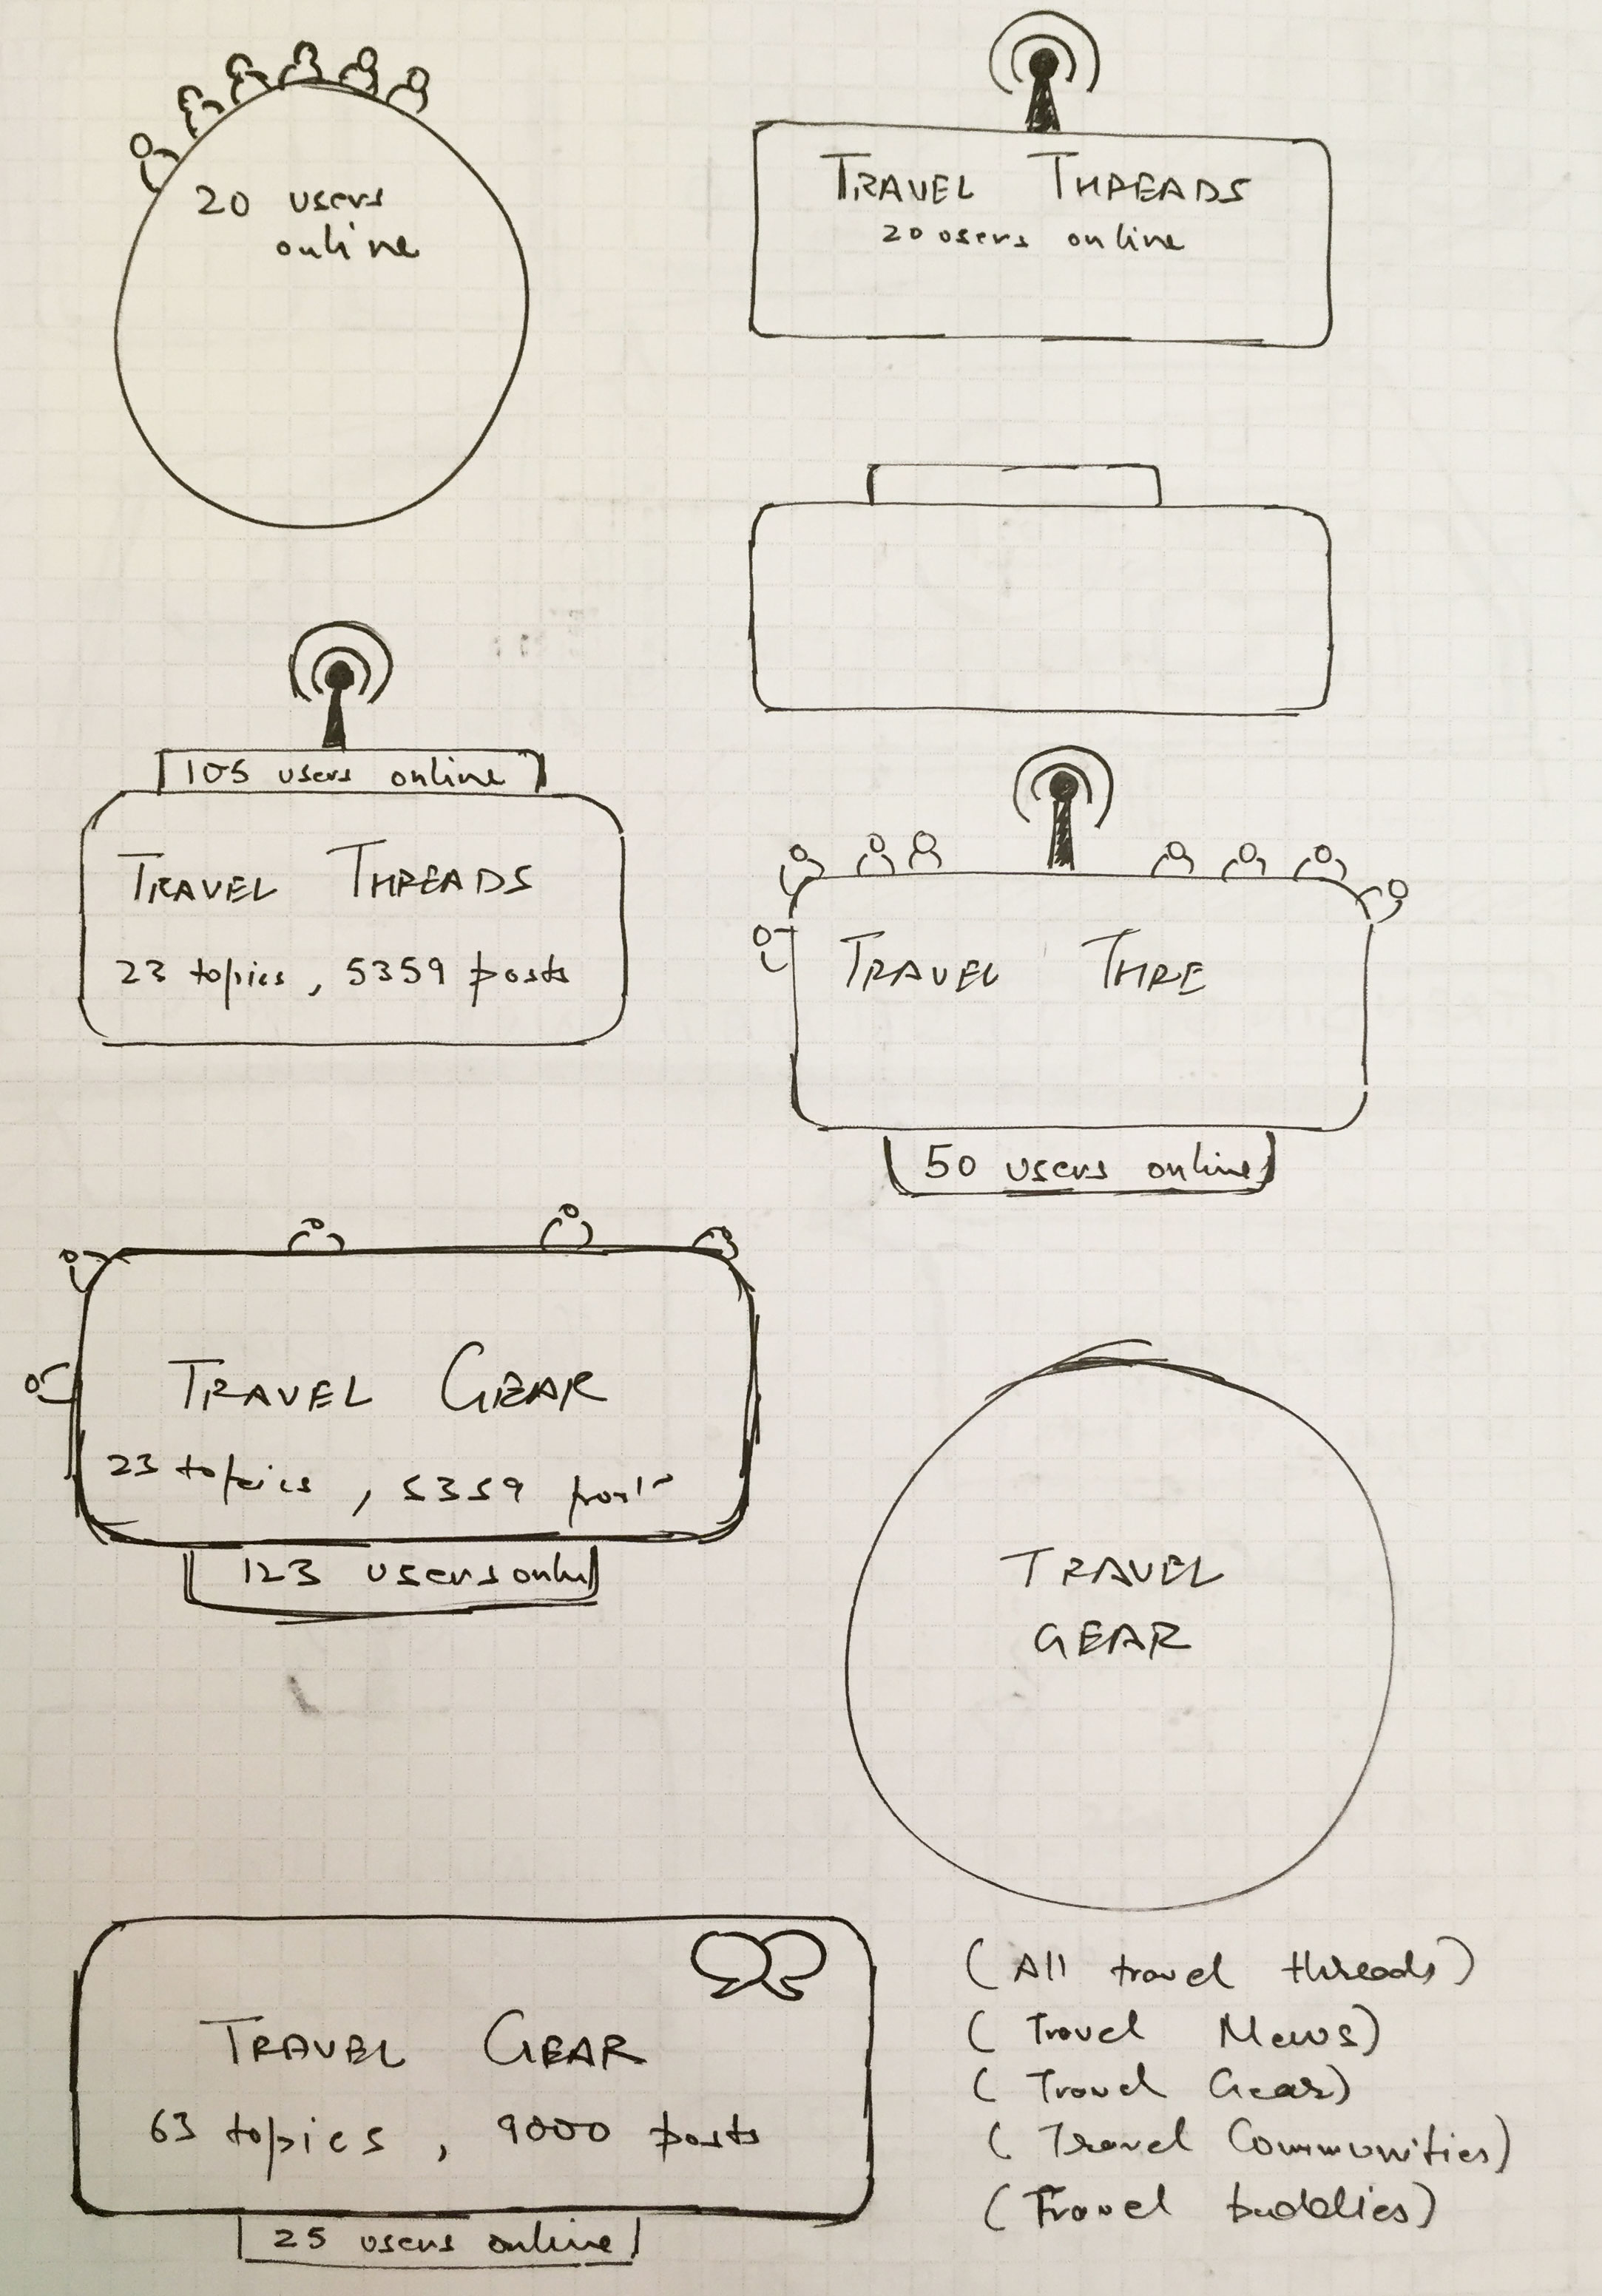 20 users
online
TRAVEL THREADS
20 users online
105 users online
TRAVEL THREADS
23 topics, 5359 posts
TRAVEL THRE
50 users online
TRAVEL GEAR
23 topics, 5359 posts
123 users onlin
TRAVEL
GEAR
TRAVEL GEAR
63 topics, 9000 posts
25 users online
(All travel threads)
(Travel News)
(Travel Gear)
(Travel Communities)
(Travel buddies)